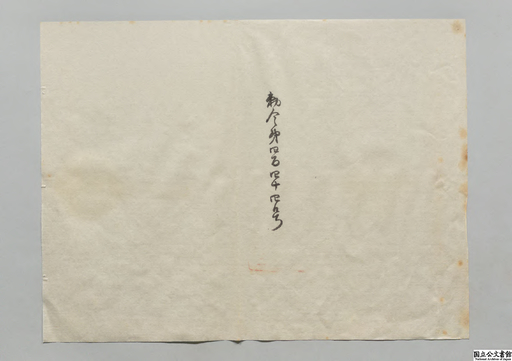 勅令第四百四十四号
国立公文書館
National Archives of Japan